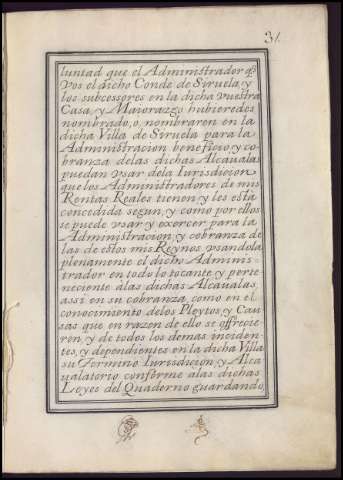 31
luntad que el Administrador q͂
vos el dicho Conde de Siruela, y
los subcessores en la dicha vuestra
Casa, y Maiorazgo hubieredes
nombrado, o, nombraren en la
dicha Villa de Siruela para la
Administracion beneficio y co-
branza delas dichas Alcaualas,
puedan vsar dela Iurisdicion
que los Administradores de mis
Rentas Reales tienen, y les esta
concedida segun, y como por ellos
se puede vsar y exercer para la
Administracion, y cobranza de
las de estos mis Reynos vsandola
plenamente el dicho Adminis-
trador en todo lo tocante, y perte-
neciente alas dichas Alcaualas,
assi en su cobranza, como en el
conocimiento delos Pleytos, y Cau
sas que en razon de ello se offrecie-
ren, y de todos los demas inciden-
tes, y dependientes en la dicha Villa
su Termino Iurisdicion, y Alca
ualatorio conforme alas dichas
Leyes del Quaderno guardando,